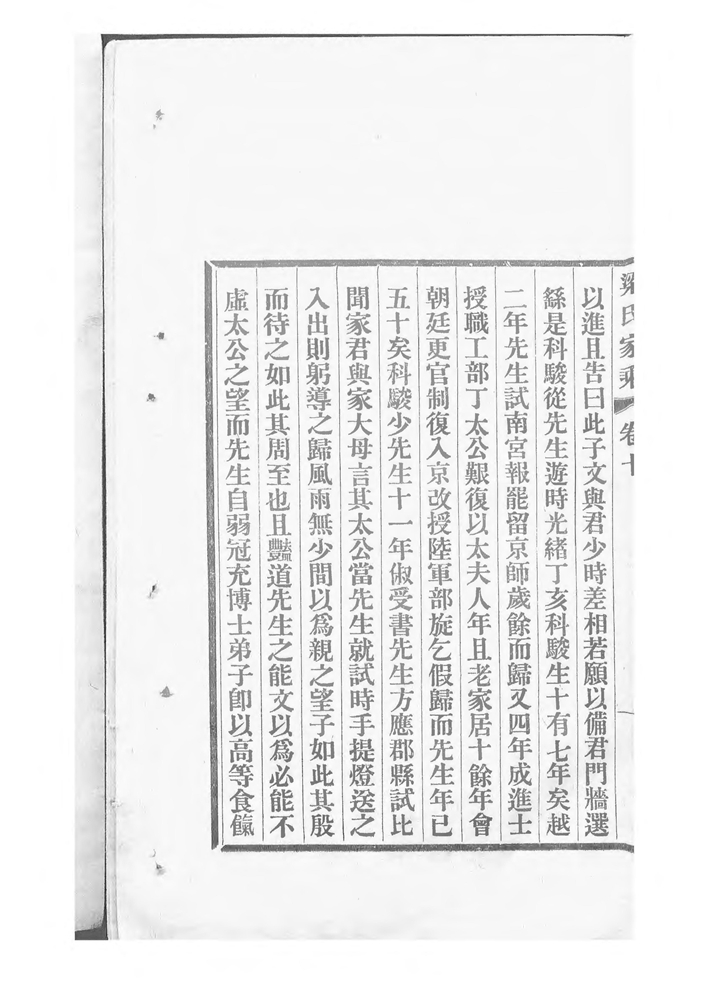 梁氏家乘 卷十
以進且告曰此子文與君少時差相若願以備君門牆選
繇是科駿從先生遊時光緒丁亥科駿生十有七年矣越
二年先生試南宮報罷留京師歲餘而歸又四年成進士
授職工部丁太公艱復以太夫人年且老家居十餘年會
朝廷更官制復入京改授陸軍部旋乞假歸而先生年已
五十矣科駿少先生十一年俶受書先生方應郡縣試比
聞家君與家大母言其太公當先生就試時手提燈送之
入出則躬導之歸風雨無少間以爲親之望子如此其殷
而待之如此其周至也且豔道先生之能文以爲必能不
虛太公之望而先生自弱冠充博士弟子卽以高等食餼